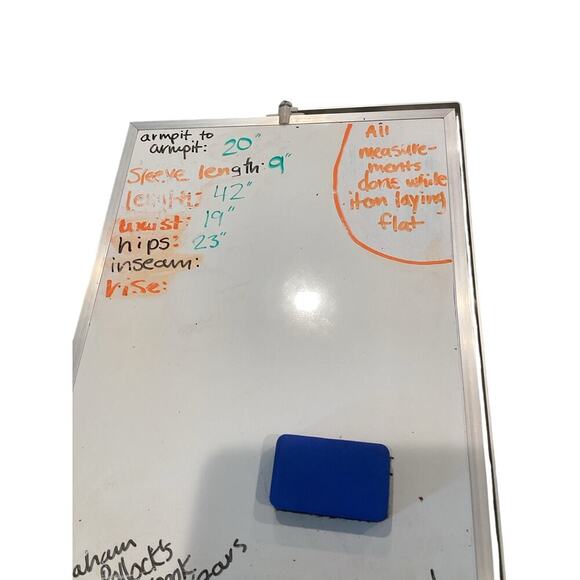 armpit to
armpit: 20"
Sleeve length: 9"
length: 42"
waist: 19"
hips: 23"
inseam:
rise:
All
measure-
ments
done while
item laying
flat